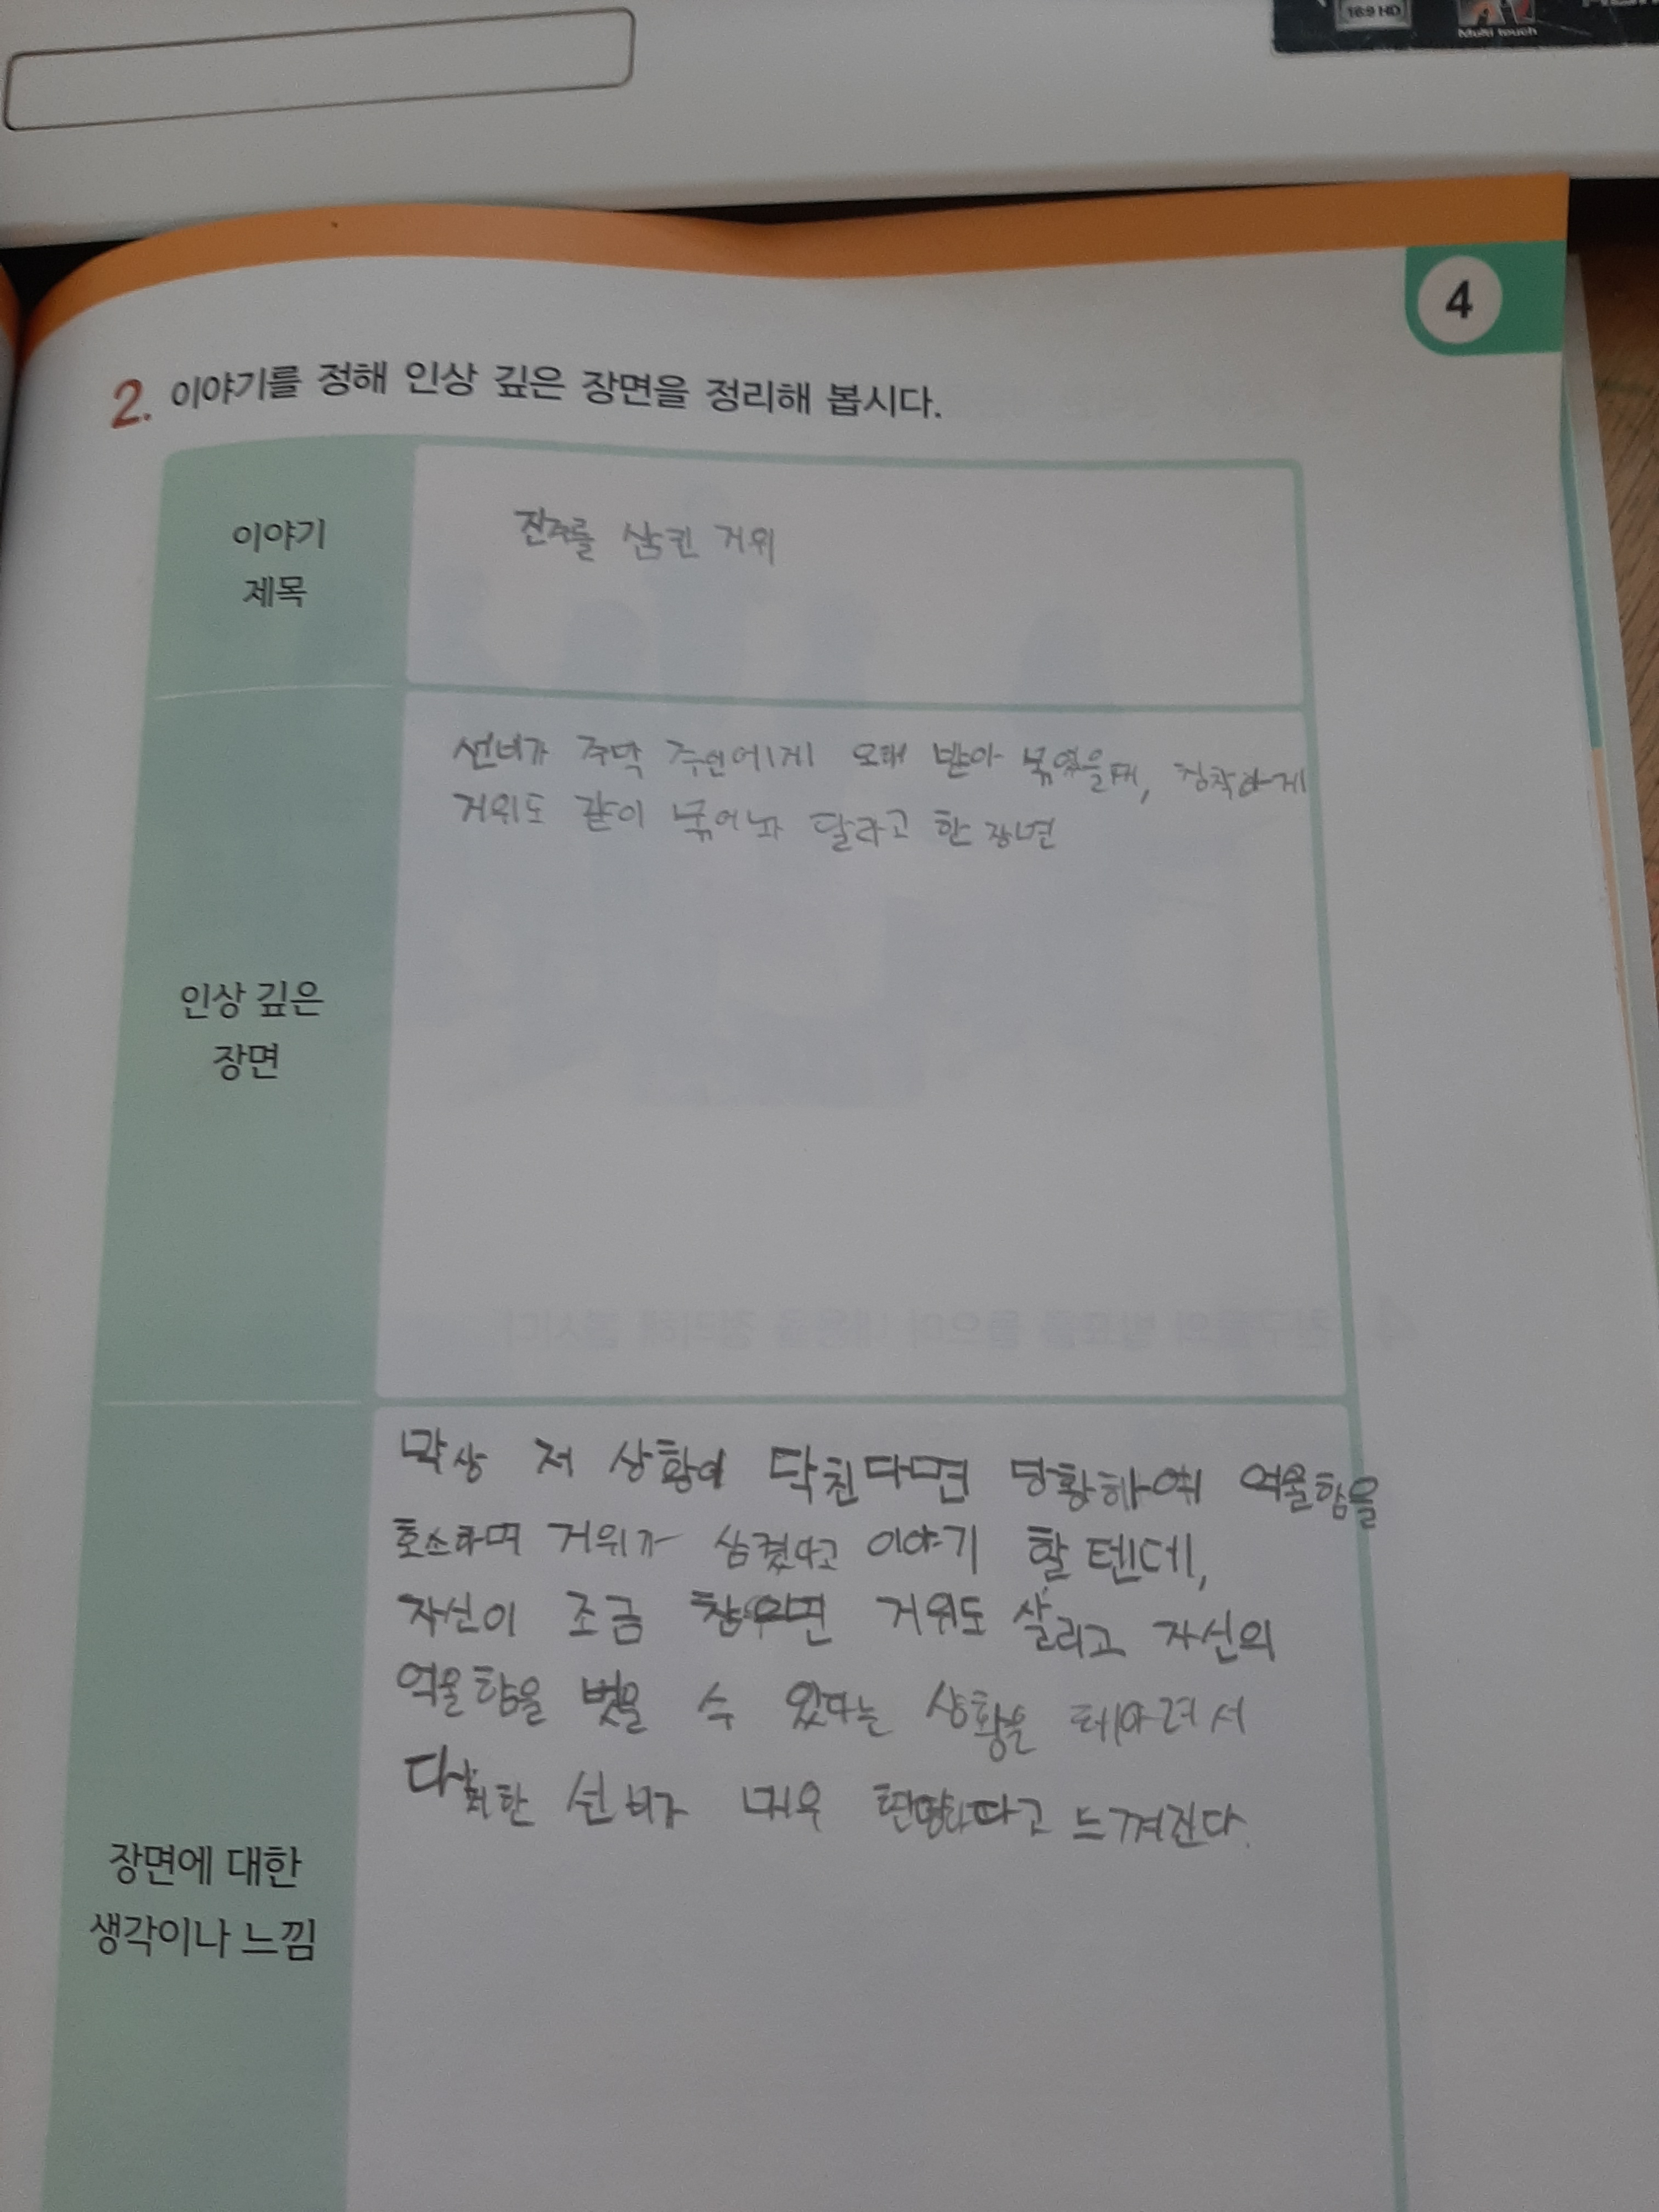 16:9 HD
Multi touch
4
2. 이야기를 정해 인상 깊은 장면을 정리해 봅시다.
이야기
제목
진주를 삼킨 거위
인상 깊은
장면
선비가 주막 주인에게 오해 받아 묶였을때, 침착하게
거위도 같이 묶어놔 달라고 한 장면
장면에 대한
생각이나 느낌
막상 저 상황이 닥친다면 당황하여 억울함을
호소하며 거위가 삼켰다고 이야기 할텐데,
자신이 조금 참으면 거위도 살리고 자신의
억울함을 벗을 수 있다는 상황을 헤아려서
선비가 매우 현명하다고 느껴진다.